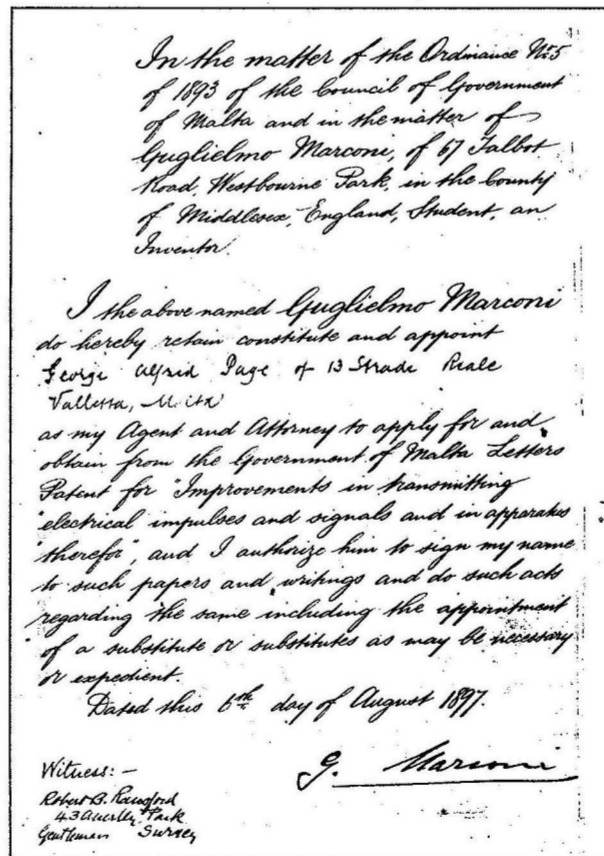 In the matter of the Ordinance No 5
of 1893 of the Council of Government
of Malta and in the matter of
Guglielmo Marconi, of 67 Talbot
Road, Westbourne Park, in the County
of Middlesex, England, Student, an
Inventor.
I the above named Guglielmo Marconi
do hereby retain constitute and appoint
George Alfred Page of 13 Strada Reale
Valletta, Malta
as my Agent and Attorney to apply for and
obtain from the Government of Malta Letters
Patent for "Improvements in transmitting
"electrical impulses and signals and in apparatus
"therefor", and I authorize him to sign my name
to such papers and writings and do such acts
regarding the same including the appointment
of a substitute or substitutes as may be necessary
or expedient.
Dated this 6th day of August 1897.
G. Marconi
Witness:-
Robert B. Ransford
43 Anerley Park
Gentleman Surrey